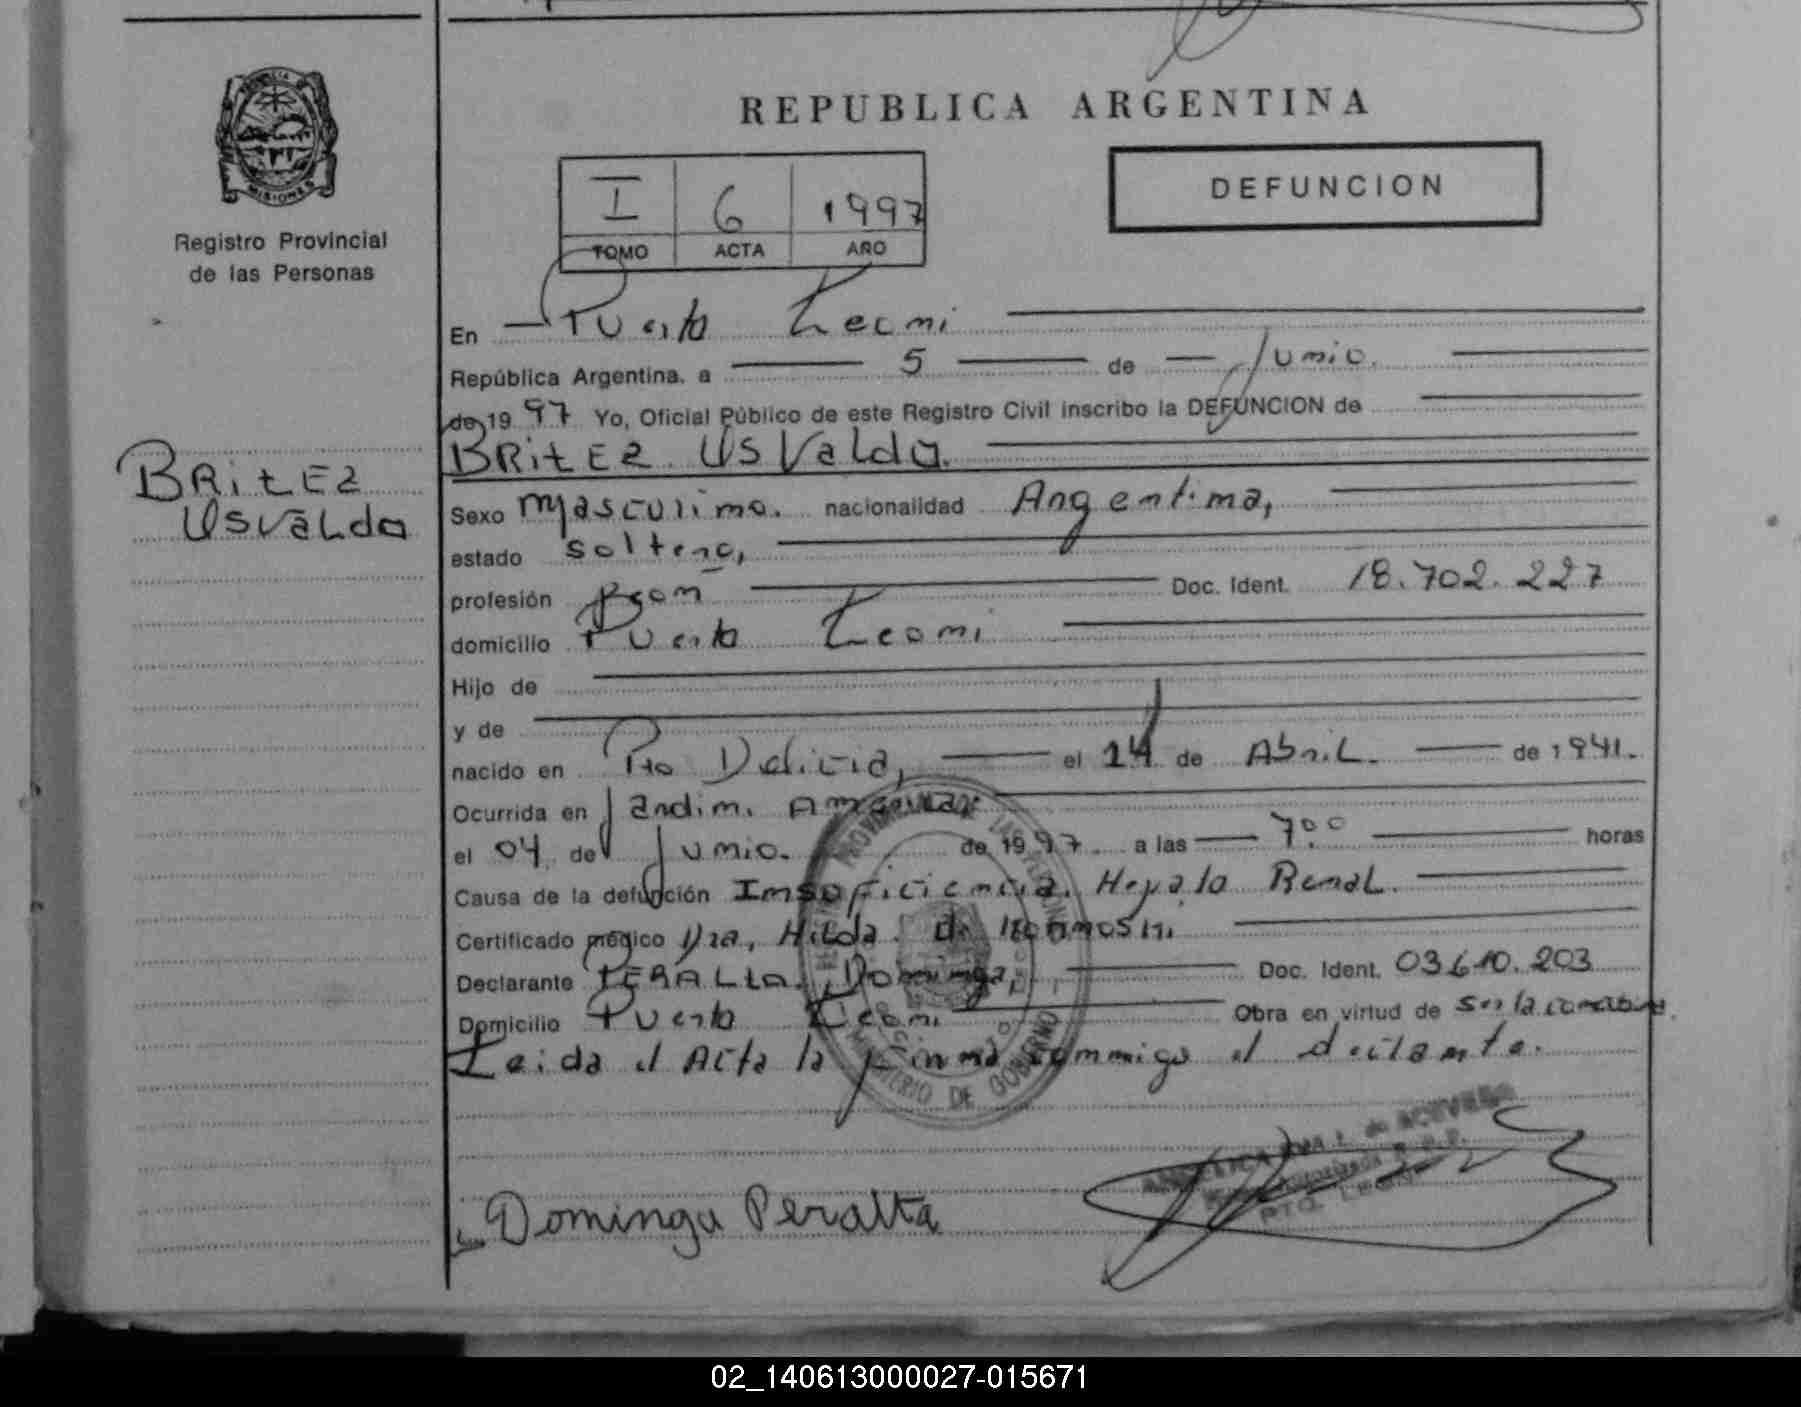 REPUBLICA ARGENTINA
PROVINCIA DE
MISIONES
Registro Provincial
de las Personas
DEFUNCION
I 6 1997
TOMO ACTA AÑO
En Puerto Leoni
República Argentina, a 5 de Junio.
de 19 97 Yo, Oficial Público de este Registro Civil inscribo la DEFUNCION de
BRitEz UsValdo.
BRitEz
UsVaLdo
Sexo Masculino. nacionalidad Argentina,
estado soltero,
profesión Peon Doc. Ident. 18.702.227
domicilio Puerto Leoni
Hijo de
y de
nacido en Pto Delicia, el 14 de AbriL. de 1941.
Ocurrida en Jardin America
el 04 de Junio. de 1997. a las 7°° horas
Causa de la defunción Insuficiencia Hepato RenaL.
Certificado médico Dra, Hilda de
Declarante PERALta, Dominga, Doc. Ident. 03.610.203
Domicilio Puerto Leoni Obra en virtud de ser la concubina.
Leida el Acta la firma conmigo el declante.
MINISTERIO DE GOBIERNO
ANGELICA de ACEVEDO
PTO. LEONI
Dominga Peralta
02_140613000027-015671